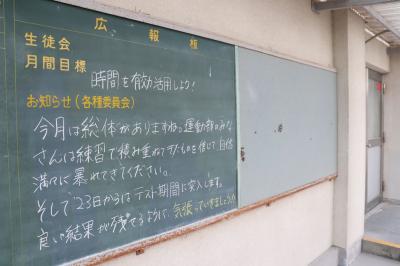 広報板
生徒会
月間目標
時間を有効活用しよう!
お知らせ(各種委員会)
今月は総体がありますね。運動部のみな
さんは練習で積み重ねてきたものを信じて、自信
満々に暴れてきてください。
そして23日からはテスト期間に突入します。
良い結果が残せるように気張っていきましょう!